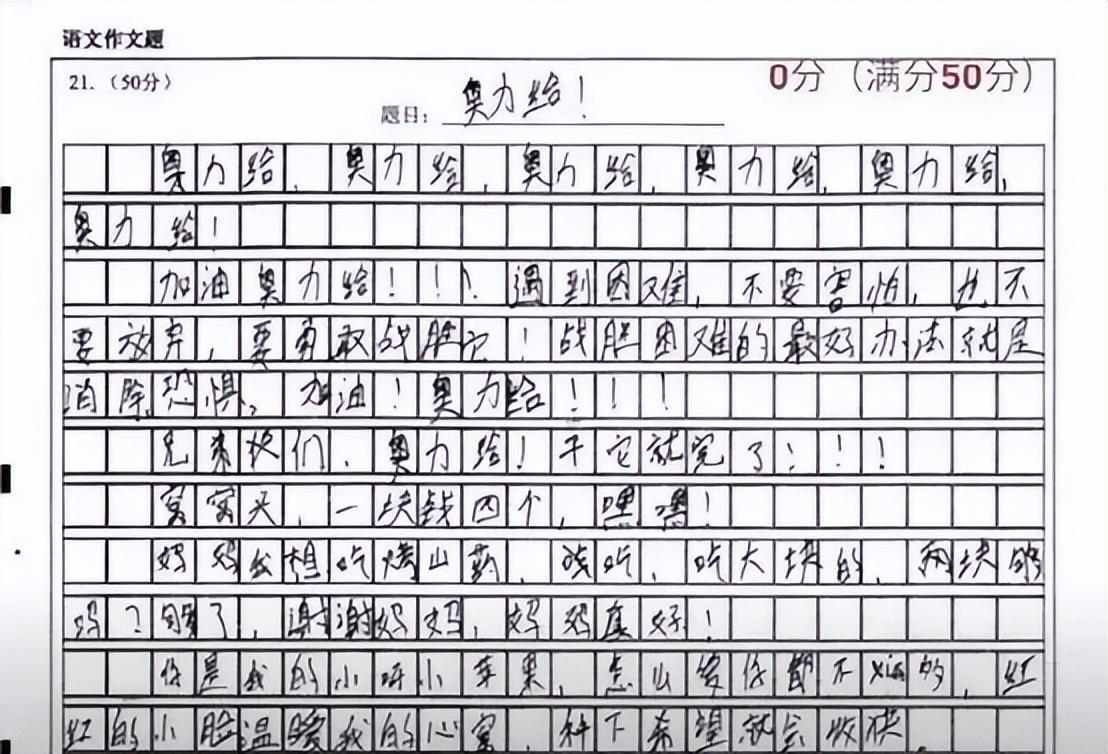 语文作文题
21.（50分）
0分（满分50分）
题目：奥力给！
奥力给，奥力给，奥力给，奥力给，奥力给，
奥力给！
加油奥力给！！！遇到困难，不要害怕，也不
要放弃，要勇敢战胜它！战胜困难的最好办法就是
消除恐惧。加油！奥力给！！！
兄弟伙们，奥力给！干它就完了！！！
窝窝头，一块钱四个，嘿嘿！
妈妈我想吃烤山药，吃，吃大块的，两块够
吗？够了，谢谢妈妈，妈妈真好！
你是我的小呀小苹果，怎么爱你都不xian的，红
红的小脸温暖我的心窝，种下希望就会收获